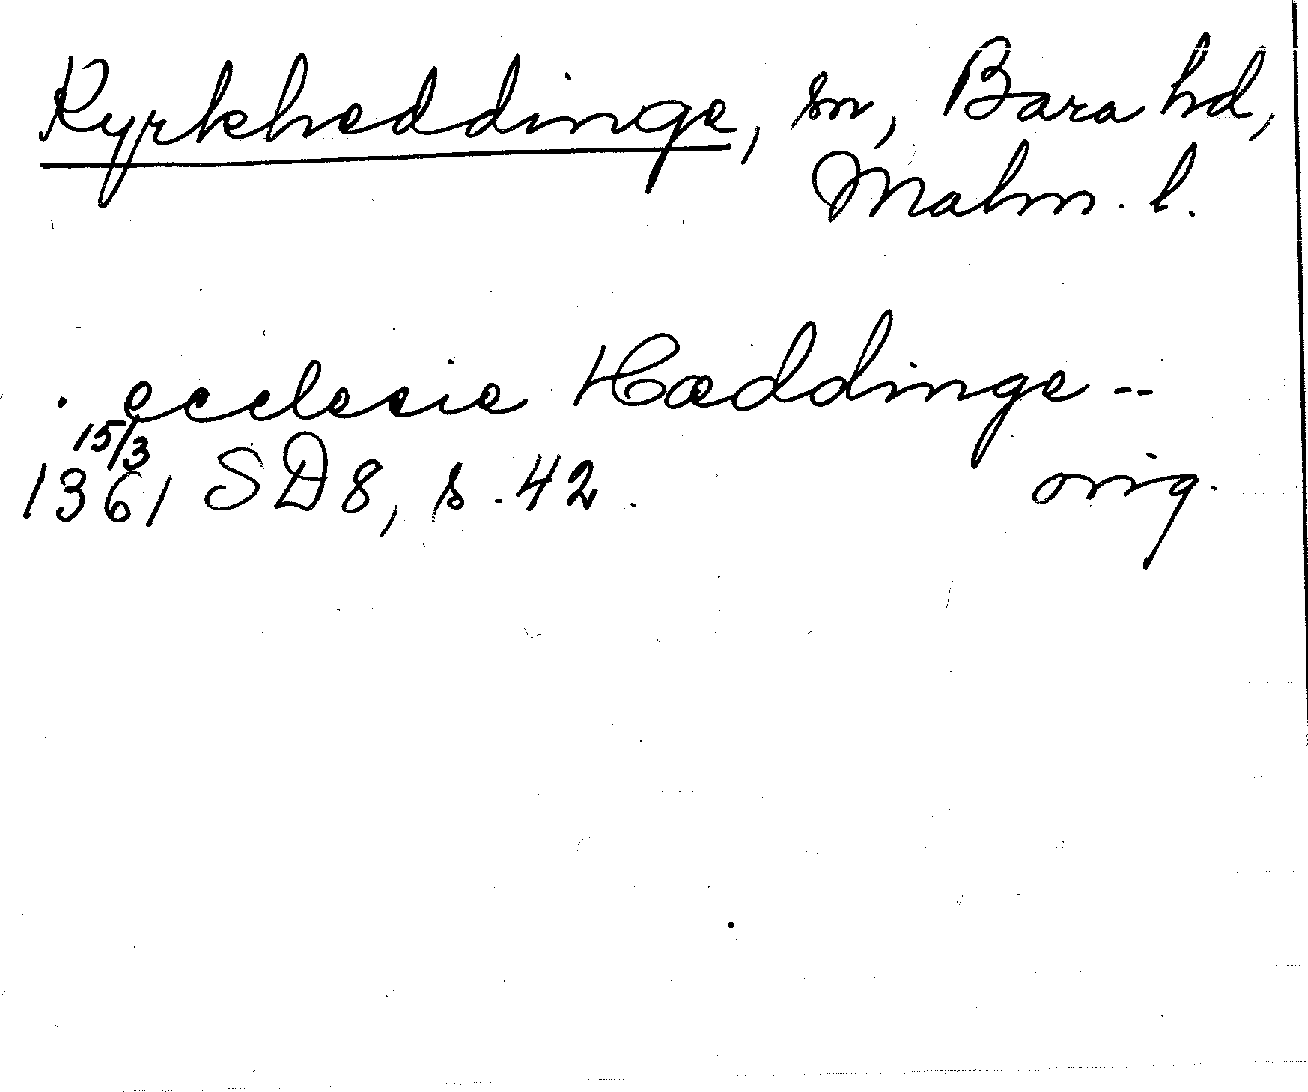 Kyrkheddinge, sn, Bara hd,
Malm. l.
. ecclesie Hæddinge --
15/3
1361 SD 8, s. 42. orig.